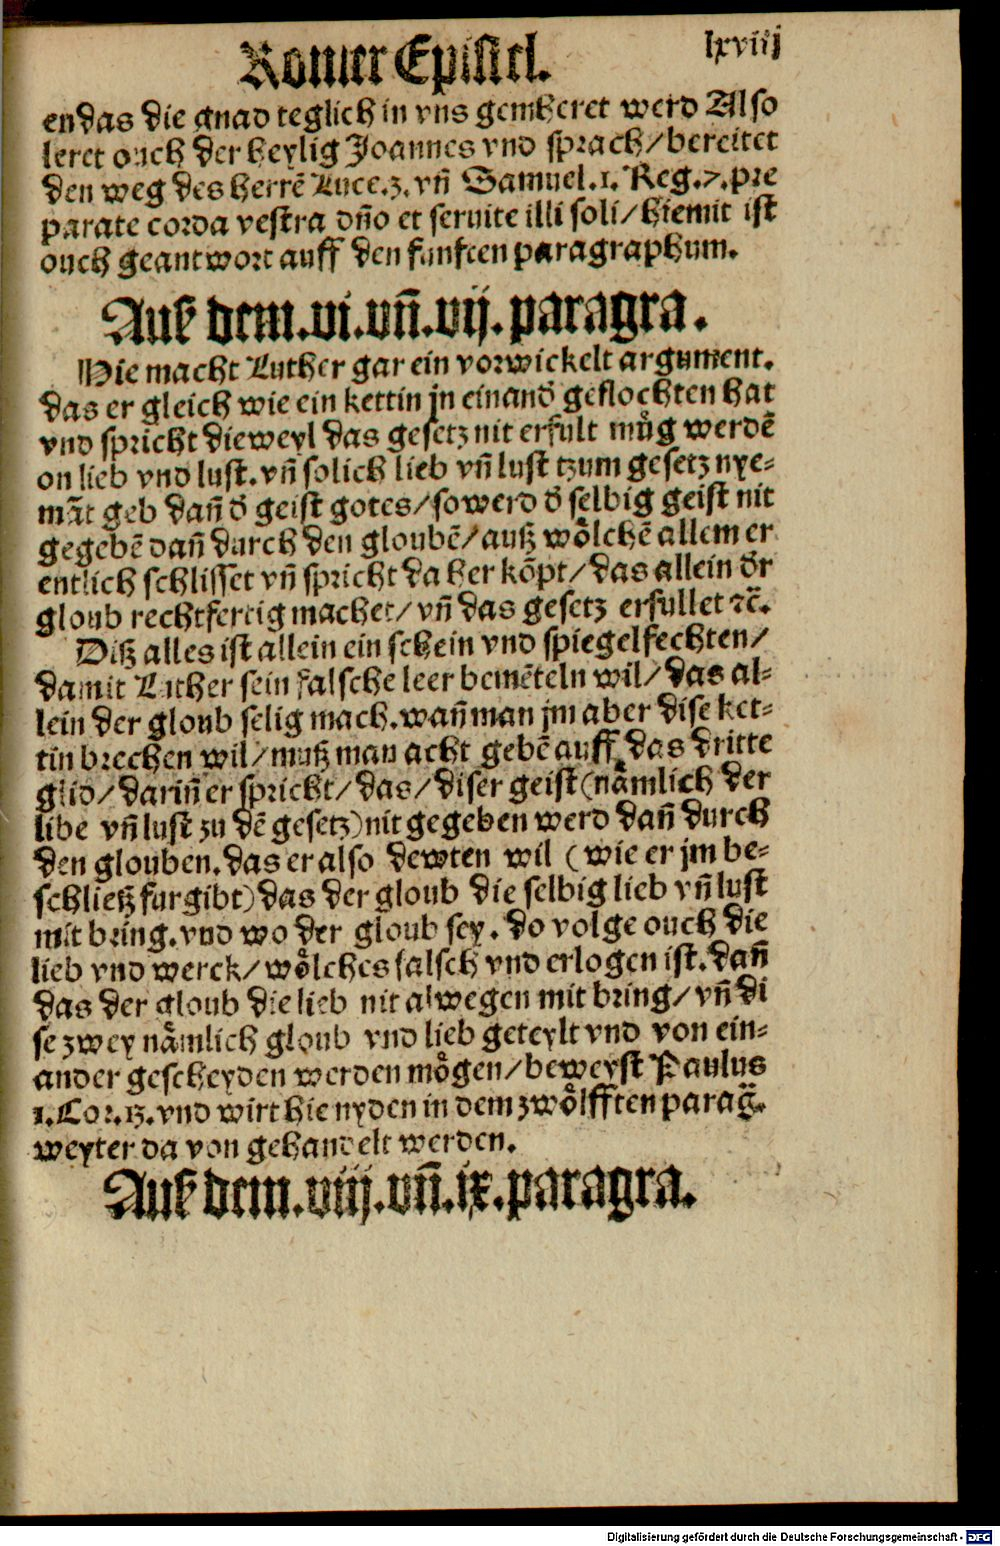 Romer Epistel. lxviij
en das die gnad teglich in vns gemheret werd Also
leret ouch der heylig Joannes vnd sprach/ bereitet
den weg des herrē Luce.3. vñ Samuel.1. Reg.7. pre
parate corda vestra dño et seruite illi soli/ hiemit ist
ouch geantwort auff den funften paragraphum.
Auß dem.vi.vñ.vij.paragra.
Hie macht Luther gar ein vorwickelt argument.
das er gleich wie ein kettin jn einand̓ geflochten hat
vnd spricht dieweyl das gesetz nit erfult mu̍g werdē
on lieb vnd lust. vñ solich lieb vñ lust tzum gesetz nye-
māt geb dañ d̓ geist gotes/ so werd d̓ selbig geist nit
gegebē dañ durch den gloubē/ auß wo̎lchē allem er
entlich schlisset vñ spricht da her kōpt/ das allein d̓r
gloub rechtfertig machet/ vñ das gesetz erfullet ⁊č.
Diß alles ist allein ein schein vnd spiegelfechten/
damit Luther sein falsche leer bemēteln wil/ das al-
lein der gloub selig mach. wañ man jm aber dise ket-
tin brechen wil/ muß man acht gebē auff das dritte
glid/ dariñ er spricht/ das/ diser geist (nämlich der
libe vñ lust zu dē gesetz) nit gegeben werd dañ durch
den glouben. das er also dewten wil (wie er jm be-
schließ furgibt) das der gloub die selbig lieb vñ lust
mit bring. vnd wo der gloub sey. do volge ouch die
lieb vnd werck/ wölches falsch vnd erlogen ist. dañ
das der gloub die lieb nit alwegen mit bring/ vñ di
se zwey nämlich gloub vnd lieb geteylt vnd von ein-
ander gescheyden werden mögen/ beweyst Paulus
1. Cor.13. vnd wirt hie nyden in dem zwölfften parag̃.
weyter da von gehandelt werden.
Auß dem.viij.vñ.ix.paragra.
Digitalisierung gefördert durch die Deutsche Forschungsgemeinschaft - DFG